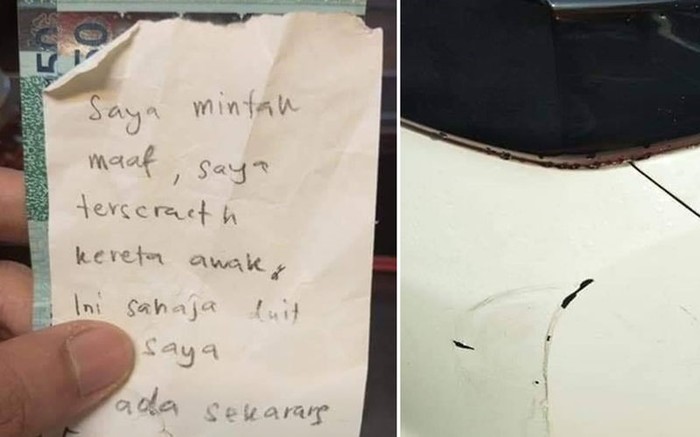 50
50
Saya mintak
maaf, saya
terscracth
kereta awak.
Ini sahaja duit
saya
ada sekarang